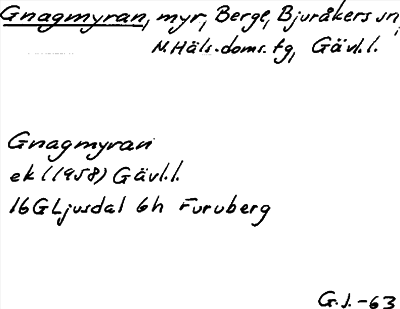 Gnagmyran, myr, Berge, Bjuråkers sn,
N.Häls.doms.tg, Gävl.l.
Gnagmyran
ek (1958) Gävl.l.
16G Ljusdal 6h Furuberg
G.J.-63